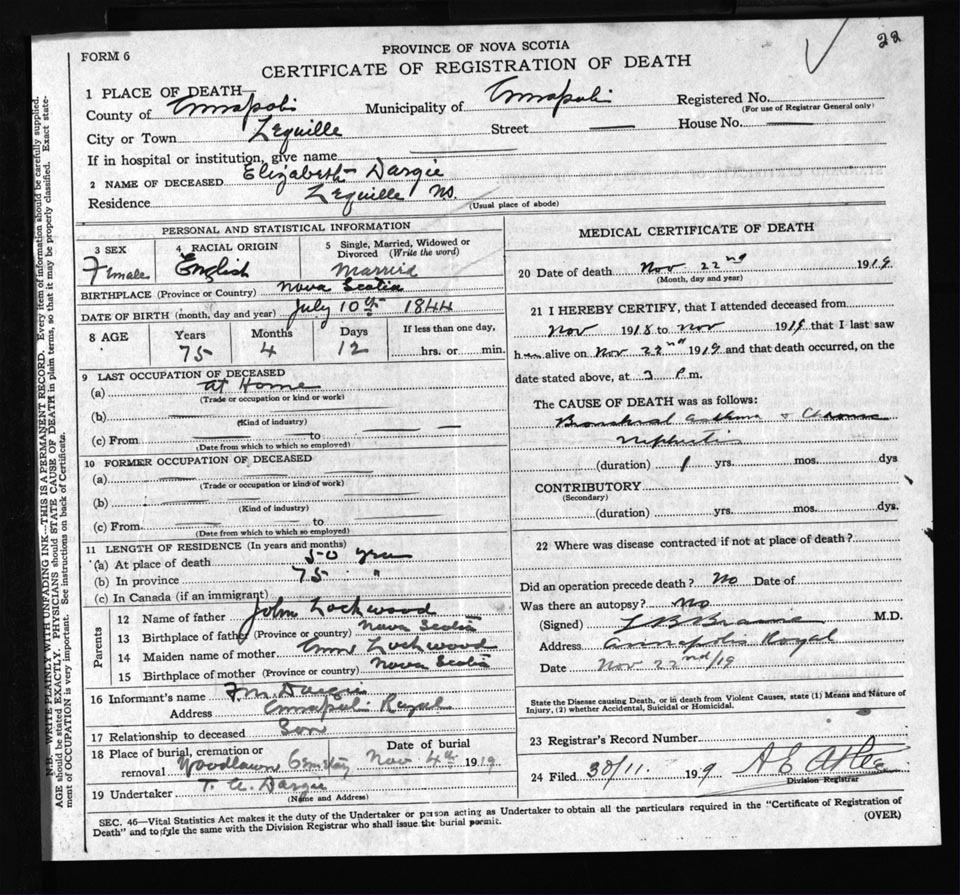 22
FORM 6
PROVINCE OF NOVA SCOTIA
CERTIFICATE OF REGISTRATION OF DEATH
1 PLACE OF DEATH—
County of Annapolis Municipality of Annapolis Registered No.
(For use of Registrar General only)
City or Town Lequille Street — House No. —
If in hospital or institution, give name
2 NAME OF DECEASED Elizabeth Dargie
Residence Lequille NS.
(Usual place of abode)
PERSONAL AND STATISTICAL INFORMATION
3 SEX Female
4 RACIAL ORIGIN English
5 Single, Married, Widowed or Divorced (Write the word) Married
BIRTHPLACE (Province or Country) Nova Scotia
DATE OF BIRTH (month, day and year) July 10th 1844
8 AGE Years 75 Months 4 Days 12 If less than one day, hrs. or min.
9 LAST OCCUPATION OF DECEASED
(a) at Home
(Trade or occupation or kind of work)
(b)
(Kind of industry)
(c) From to
(Date from which to which so employed)
10 FORMER OCCUPATION OF DECEASED
(a)
(Trade or occupation or kind of work)
(b)
(Kind of industry)
(c) From to
(Date from which to which so employed)
11 LENGTH OF RESIDENCE (In years and months)
(a) At place of death 50 yrs
(b) In province 75 "
(c) In Canada (if an immigrant)
Parents
12 Name of father John Lockwood
13 Birthplace of father (Province or country) Nova Scotia
14 Maiden name of mother Lockwood
15 Birthplace of mother (Province or country) Nova Scotia
16 Informant's name F M Dargie
Address Annapolis Royal
17 Relationship to deceased Son
18 Place of burial, cremation or removal Woodlawn Cemetery
Date of burial Nov 4th 1919.
19 Undertaker T. A. Dargie
(Name and Address)
MEDICAL CERTIFICATE OF DEATH
20 Date of death Nov 22nd 1919.
(Month, day and year)
21 I HEREBY CERTIFY, that I attended deceased from
Nov 1918 to Nov 1919 that I last saw
her alive on Nov 22nd 1919 and that death occurred, on the
date stated above, at 3 P.m.
The CAUSE OF DEATH was as follows:
Bronchial asthma & Chronic
Nephritis
(duration) 1 yrs. mos. dys
CONTRIBUTORY
(Secondary)
(duration) yrs. mos. dys.
22 Where was disease contracted if not at place of death?
Did an operation precede death? No Date of
Was there an autopsy? No
(Signed) L B Braine M.D.
Address Annapolis Royal
Date Nov 22nd/19
State the Disease causing Death, or in death from Violent Causes, state (1) Means and Nature of
Injury, (2) whether Accidental, Suicidal or Homicidal.
23 Registrar's Record Number
24 Filed 30/11. 1919
Division Registrar
SEC. 46—Vital Statistics Act makes it the duty of the Undertaker or person acting as Undertaker to obtain all the particulars required in the "Certificate of Registration of
Death" and to file the same with the Division Registrar who shall issue the burial permit.
(OVER)
N.B.—WRITE PLAINLY WITH UNFADING INK—THIS IS A PERMANENT RECORD. Every item of information should be carefully supplied.
AGE should be stated EXACTLY. PHYSICIANS should STATE CAUSE OF DEATH in plain terms, so that it may be properly classified. Exact state-
ment of OCCUPATION is very important. See instructions on back of Certificate.